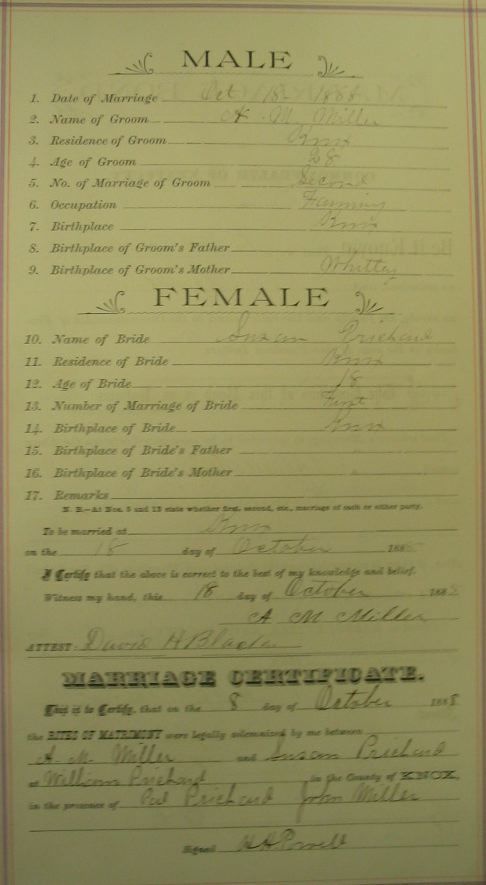 MALE
1. Date of Marriage Oct 18 1888
2. Name of Groom A. M. Miller
3. Residence of Groom Knox
4. Age of Groom 28
5. No. of Marriage of Groom Second
6. Occupation Farming
7. Birthplace Knox
8. Birthplace of Groom's Father
9. Birthplace of Groom's Mother Whitley
FEMALE
10. Name of Bride Susan Prichard
11. Residence of Bride Knox
12. Age of Bride 18
13. Number of Marriage of Bride First
14. Birthplace of Bride Knox
15. Birthplace of Bride's Father "
16. Birthplace of Bride's Mother "
17. Remarks
N. B.—At Nos. 5 and 13 state whether first, second, etc., marriage of each or either party.
To be married at Knox
on the 18 day of October 188
I Certify that the above is correct to the best of my knowledge and belief.
Witness my hand, this 18 day of October 188
A M Miller
ATTEST: David H
MARRIAGE CERTIFICATE.
This is to Certify, that on the 8 day of October 1888
the RITES OF MATRIMONY were legally solemnized by me between
A. M. Miller and Susan Prichard
at William Prichard in the County of KNOX,
in the presence of Prichard John Miller
Signed H H Powell